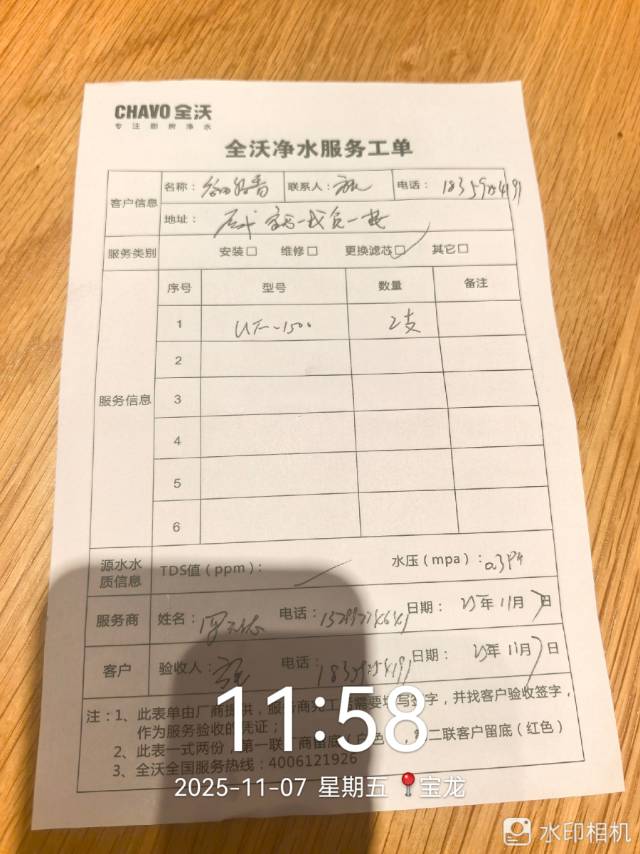 CHAVO 全沃
专注厨房净水
全沃净水服务工单
客户信息 名称: 联系人: 电话:
地址:
服务类别 安装□ 维修□ 更换滤芯□ 其它□
服务信息 序号 型号 数量 备注
1 2支
2
3
4
5
6
源水水质信息 TDS值(ppm): 水压(mpa):
服务商 姓名: 电话: 日期: 25年11月7日
客户 验收人: 电话: 日期: 25年11月7日
注:1、此表单由厂商提供,服务商完工后需要填写签字,并找客户验收签字,
作为服务验收的凭证;
2、此表一式两份,第一联厂商留底(白色),第二联客户留底(红色)
3、全沃全国服务热线:4006121926
11:58
2025-11-07 星期五 宝龙
水印相机